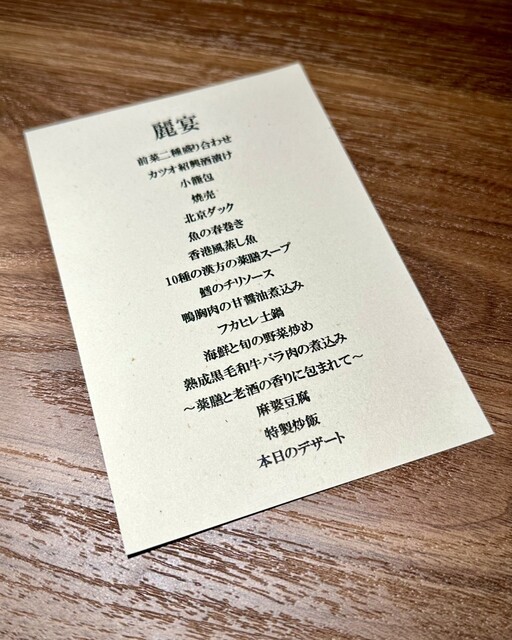 麗宴
前菜二種盛り合わせ
カツオ紹興酒漬け
小籠包
焼売
北京ダック
魚の春巻き
香港風蒸し魚
10種の漢方の薬膳スープ
鱈のチリソース
鴨胸肉の甘醤油煮込み
フカヒレ土鍋
海鮮と旬の野菜炒め
熟成黒毛和牛バラ肉の煮込み
～薬膳と老酒の香りに包まれて～
麻婆豆腐
特製炒飯
本日のデザート